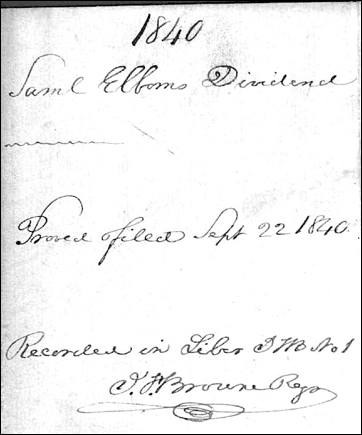 1840
Saml Elborns Dividend
Proved & filed Sept 22 1840
Recorded in Liber No 1
Browne Regr